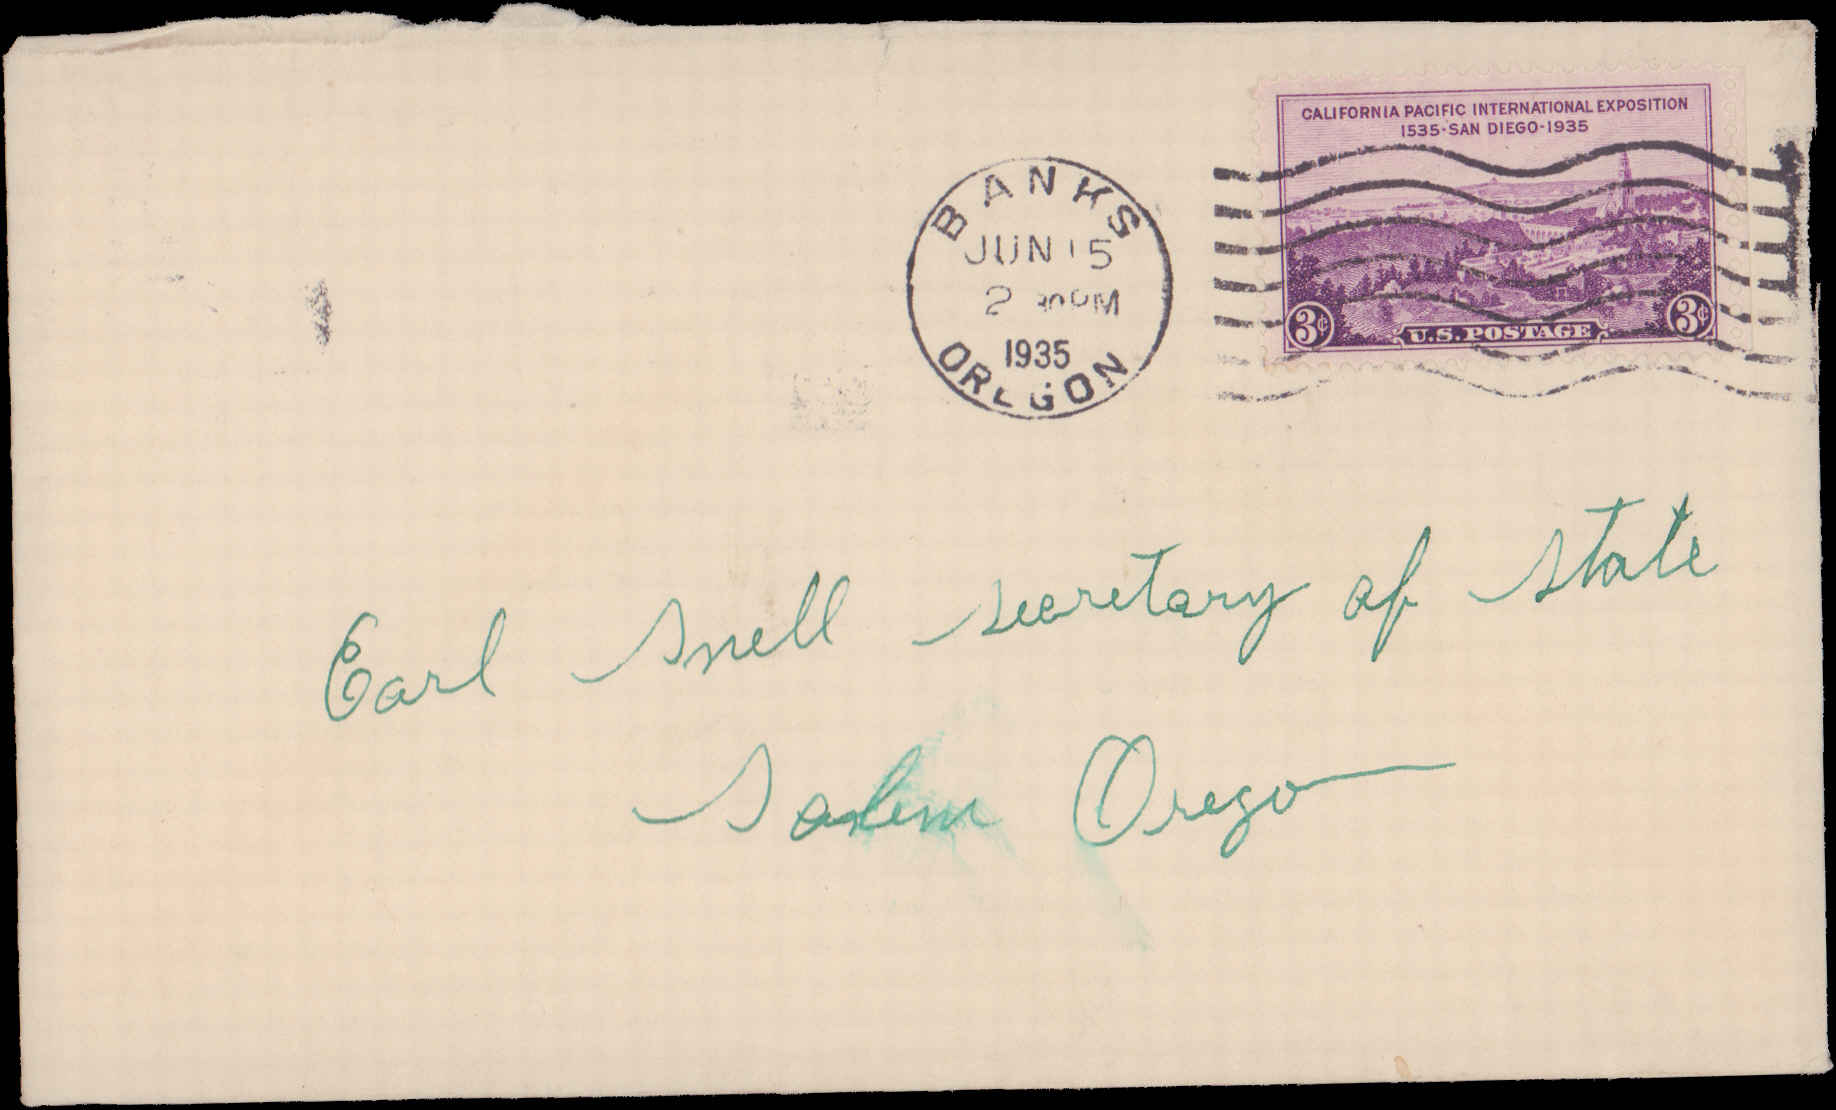 CALIFORNIA PACIFIC INTERNATIONAL EXPOSITION
1535·SAN DIEGO·1935
3¢ U.S. POSTAGE 3¢
BANKS
JUN 15
2 30 PM
1935
OREGON
Earl Snell secretary of state
Salem Oregon